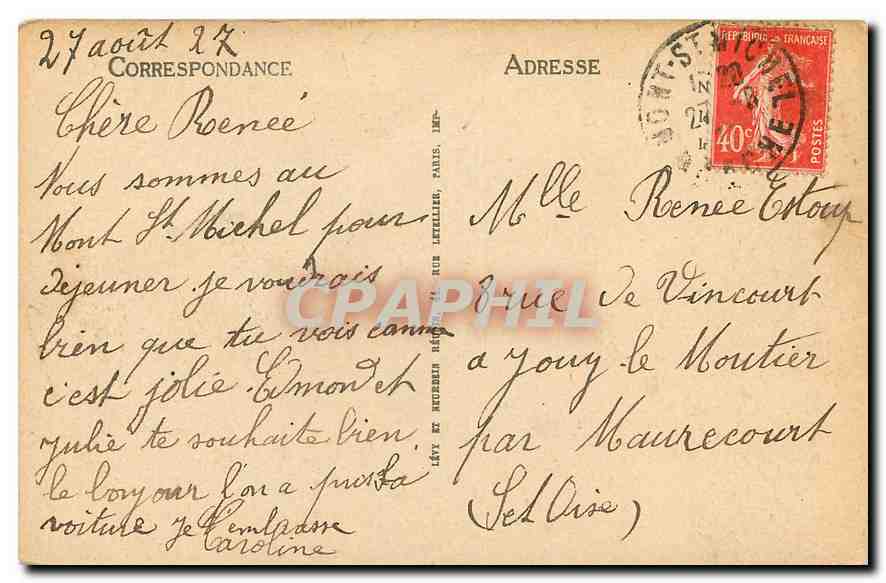 27 août 27
CORRESPONDANCE
Chère Reneé
Nous sommes au
Mont St Michel pour
dejeuner je voudrais
bien que tu vois comme
c'est jolie Edmond et
Julie te souhaite bien
le bonjour l'on a pris la
voiture Je t'embrasse
Caroline
LÉVY ET NEURDEIN RÉUNIS, 44 RUE LETELLIER, PARIS, IMP.
ADRESSE
MONT-ST-MICHEL
MANCHE
REPUBLIQUE FRANÇAISE
40c
POSTES
Mlle Renee Estoup
8 rue de Vincourt
a Jouy le Moutier
par Maurecourt
(S et Oise)
CPAPHIL